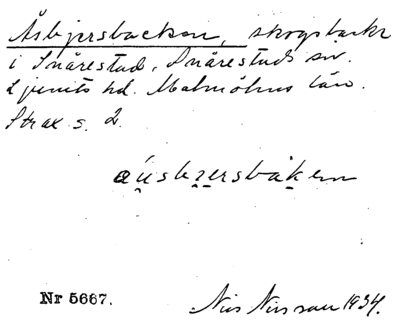 Åsbjersbacken, skogsbacke
i Snårestad, Snårestads sn.
Ljunits hd. Malmöhus län.
Strax s. 2.
Nr 5667.
Nils Nilsson 1934.